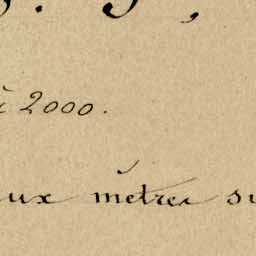 à 2000.
ux mètres su